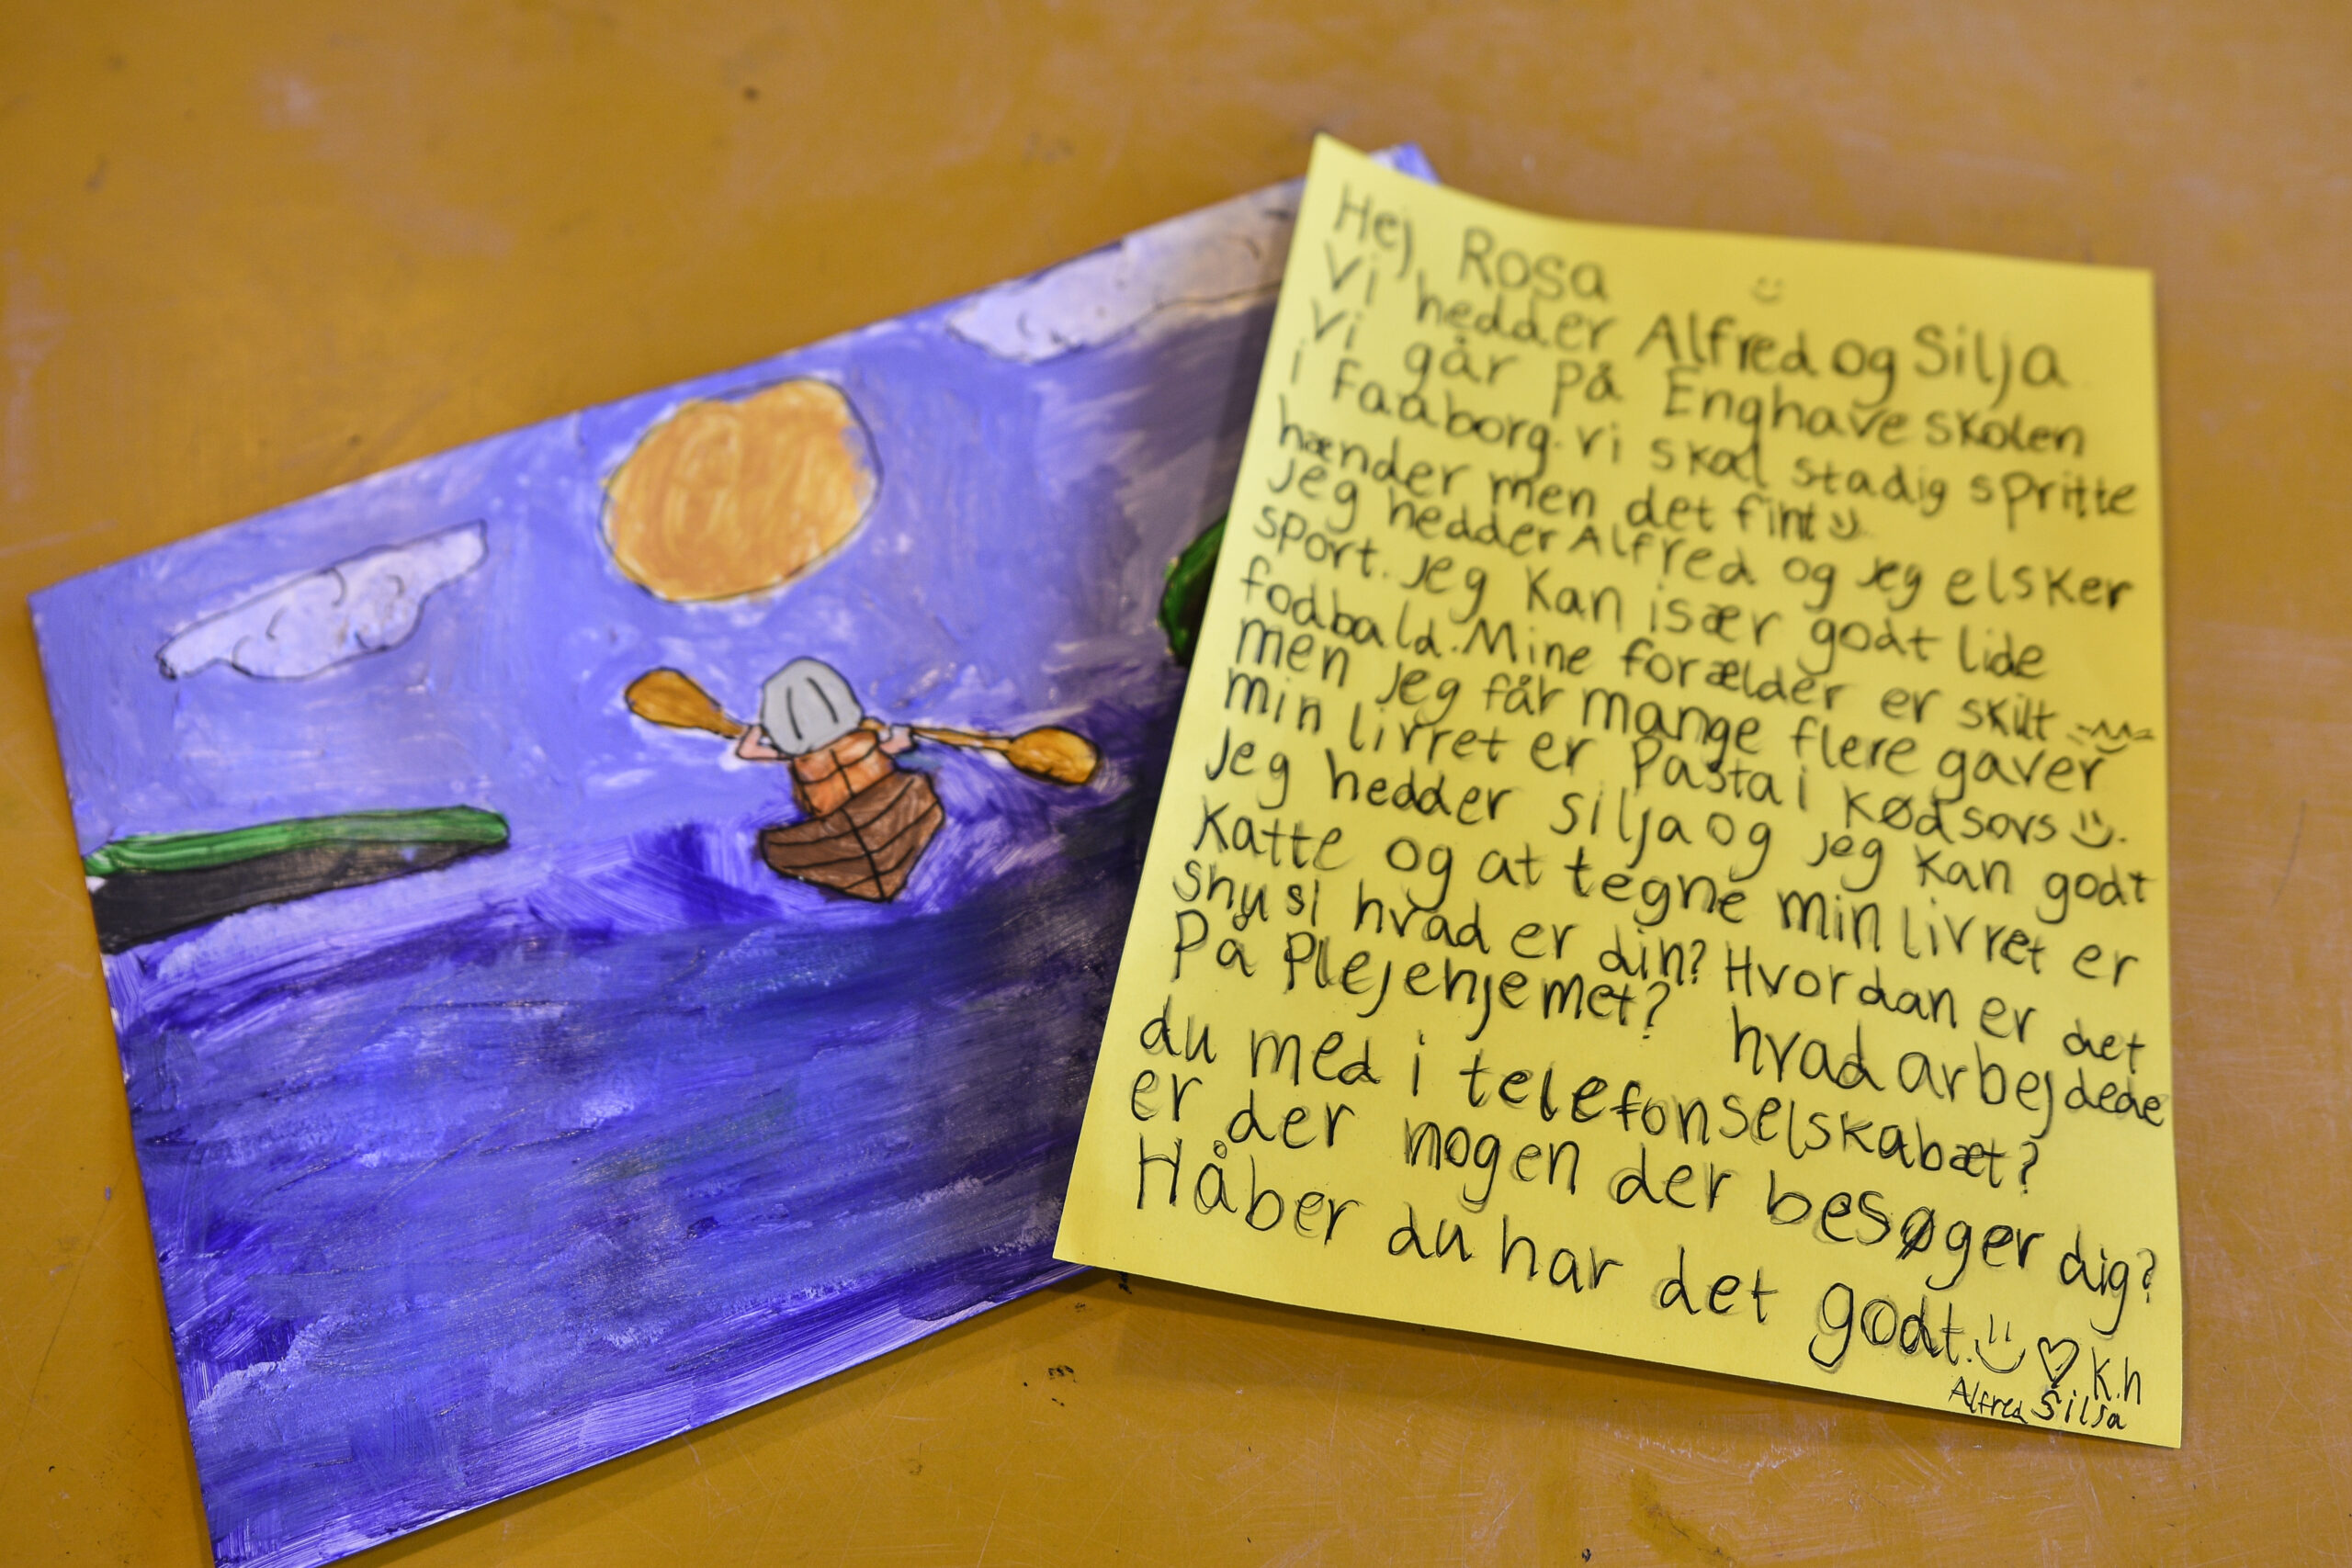 Hej Rosa
Vi hedder Alfred og Silja
Vi går på Enghaveskolen
i Faaborg. vi skal stadig spritte
hænder men det fint
jeg hedder Alfred og jeg elsker
sport. jeg kan især godt lide
fodbald. Mine forælder er skilt
men jeg får mange flere gaver
min livret er Pasta i kødsovs
jeg hedder silja og jeg kan godt
katte og at tegne min livret er
shusi hvad er din? Hvordan er det
På Plejehjemet? hvad arbejdede
du med i telefonselskabæt?
er der nogen der besøger dig?
Håber du har det godt. K.h
Alfred Silja